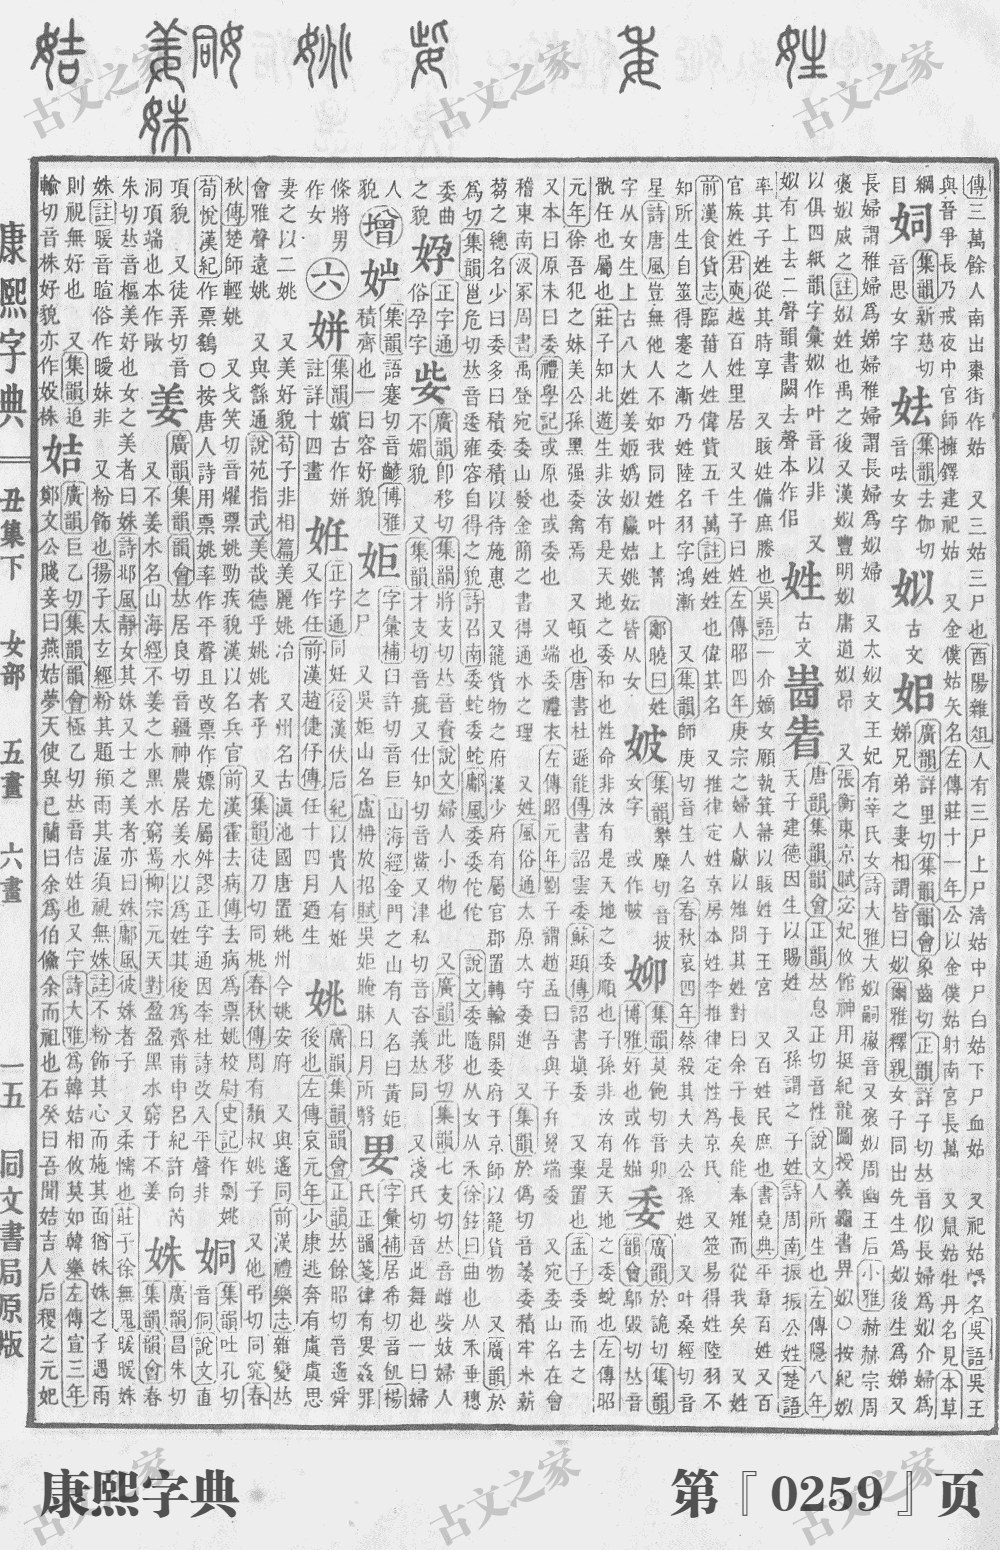 傳三萬餘人南出棗街作姑 又三姑三尸姑也酉陽雜俎人有三尸上尸清姑中尸白姑下尸血姑 又祀姑 名吳語吳王
與晉爭長乃戒夜中官師擁鐸建祀姑 又金僕姑矢名左傳莊十一年公以金僕姑射南宮長萬 又鼠姑牡丹名見本草
綱目 集韻新慈切音思女字 集韻去伽切音呿女字 姒 古文 廣韻詳里切集韻韻會象齒切正韻詳子切𠀤音似長婦爲姒介婦爲娣兄弟之妻相謂皆曰姒爾雅釋親女子同出先生爲姒後生爲娣又
長婦謂稚婦爲娣婦稚婦謂長婦爲姒婦 又太姒文王妃有莘氏女詩大雅大姒嗣徽音又褒姒周幽王后小雅赫赫宗周
褒姒烕之註姒姓也禹之後又漢姒豐明姒庸道姒昂 又張衡東京賦宓妃攸館神用挺紀龍圖授羲龜書畀姒○按紀姒
以俱四紙韻字彙姒作叶音以非 又
姒有上去二聲韻書闕去聲本作佀
姓 古文 唐韻集韻韻會正韻𠀤息正切音性說文人所生也左傳隱八年天子建德因生以賜姓 又孫謂之子姓詩周南振振公姓楚語
率其子姓從其時享 又賅姓備庶媵也吳語一介嫡女願執箕帚以賅姓于王宮 又百姓民庶也書堯典平章百姓又百
官族姓君奭越百姓里居 又生子曰姓左傳昭四年庚宗之婦人獻以雉問其姓對曰余子長矣能奉雉而從我矣 又姓
前漢食貨志臨菑人姓偉貲五千萬註姓姓偉其名 又推律定姓京房本姓李推律定性爲京氏 又筮易得姓陸羽不
知所生自筮得蹇之漸乃姓陸名羽字鴻漸 又集韻師庚切音生人名春秋哀四年蔡殺其大夫公孫姓 又叶桑經切音
星詩唐風豈無他人不如我同姓叶上菁
鄭曉曰姓字从女生上古八大姓姜姬嬀姒嬴姞姚妘皆从女
集韻攀縻切音披女字 或作㛅
集韻莫飽切音卯博雅好也或作媌
委 廣韻於詭切集韻韻會鄔毀切𠀤音骫任也屬也莊子知北遊生非汝有是天地之委和也性命非汝有是天地之委順也子孫非汝有是天地之委蛻也左傳昭
元年徐吾犯之妹美公孫黑强委禽焉 又頓也唐書杜遜能傳書詔雲委蘇頲傳詔書塡委 又棄置也孟子委而去之
又本曰原末曰委禮學記或原也或委也 又端委禮衣左傳昭元年劉子謂趙孟曰吾與子弁冕端委 又宛委山名在會
稽東南汲冢周書禹登宛委山發金簡之書得通水之理 又姓風俗通太原太守委進 又集韻於偽切音萎委積牢米薪
芻之總名少曰委多曰積委積以待施惠 又籠貨物之府漢少府有屬官郡置轉輸開委府于京師以籠貨物 又廣韻於
爲切集韻邕危切𠀤音逶雍容自得之貌詩召南委蛇委蛇鄘風委委佗佗 說文委隨也从女从禾徐鉉曰曲也从禾垂穗
委曲之貌
㜨 正字通俗孕字
姕 廣韻卽移切集韻將支切𠀤音貲說文婦人小物也 又廣韻此移切集韻七支切𠀤音雌姕妓婦人不媚貌 又集韻才支切音疵又仕知切音㰣又津私切音咨義𠀤同 又淺氏切音此舞也一曰婦
人貌
增 集韻語蹇切音齴博雅積齊也一曰容好貌
姖 字彙補臼許切音巨 山海經金門之山有人名曰黃姖之尸 又吳姖山名 盧柟放招賦吳姖晻昧日月所翳
字彙補居希切音飢楊氏正韻箋律有㚻姦罪
條將男作女
六
姘 集韻嬪古作姘註詳十四畫
姙 正字通同妊後漢伏后紀以貴人有姙 又作任前漢趙倢伃傳任十四月廼生
姚 廣韻集韻韻會正韻𠀤餘昭切音遙舜後也左傳哀元年少康逃奔有虞虞思
妻之以二姚 又美好貌荀子非相篇美麗姚冶 又州名古滇池國唐置姚州今姚安府 又與遙同前漢禮樂志雅變𠀤
會雅聲遠姚 又與繇通說苑指武美哉德乎姚姚者乎 又集韻徒刀切同桃春秋傳周有頹叔姚子 又他弔切同窕春
秋傳楚師輕姚 又弋笑切音燿票姚勁疾貌漢以名兵官前漢霍去病傳去病爲票姚校尉史記作剽姚
荀悅漢紀作票鷂○按唐人詩用票姚率作平聲且改票作嫖尤屬舛謬正字通因李杜詩改入平聲非
姛 集韻吐孔切音侗說文直項貌 又徒弄切音洞項端也本作䫫
姜 廣韻集韻韻會𠀤居良切音疆神農居姜水以爲姓其後爲齊甫申呂紀許向芮 又不姜水名山海經不姜之水黑水窮焉柳宗元天對盈盈黑水窮于不姜
姝 廣韻昌朱切集韻韻會春朱切𠀤音樞美好也女之美者曰姝詩邶風靜女其姝又士之美者亦曰姝鄘風彼姝者子 又柔懦也莊子徐無鬼暖暖姝
姝註暖音暄俗作曖姝非 又粉飾也揚子太玄經粉其題頯雨其渥須視無姝註不粉飾其心而施其面猶姝姝之子遇雨
則視無好也 又集韻追輸切音株好貌亦作㛂姝
姞 廣韻巨乙切集韻韻會極乙切𠀤音佶姓也又字詩大雅爲韓姞相攸莫如韓樂左傳宣三年鄭文公賤妾曰燕姞夢天使與已蘭曰余爲伯鯈余而祖也石癸曰吾聞姞吉人后稷之元妃
康熙字典 丑集下 女部 五畫 六畫 一五 同文書局原版
康熙字典
第『0259』页
古文之家
古文之家
古文之家
古文之家
古文之家
古文之家